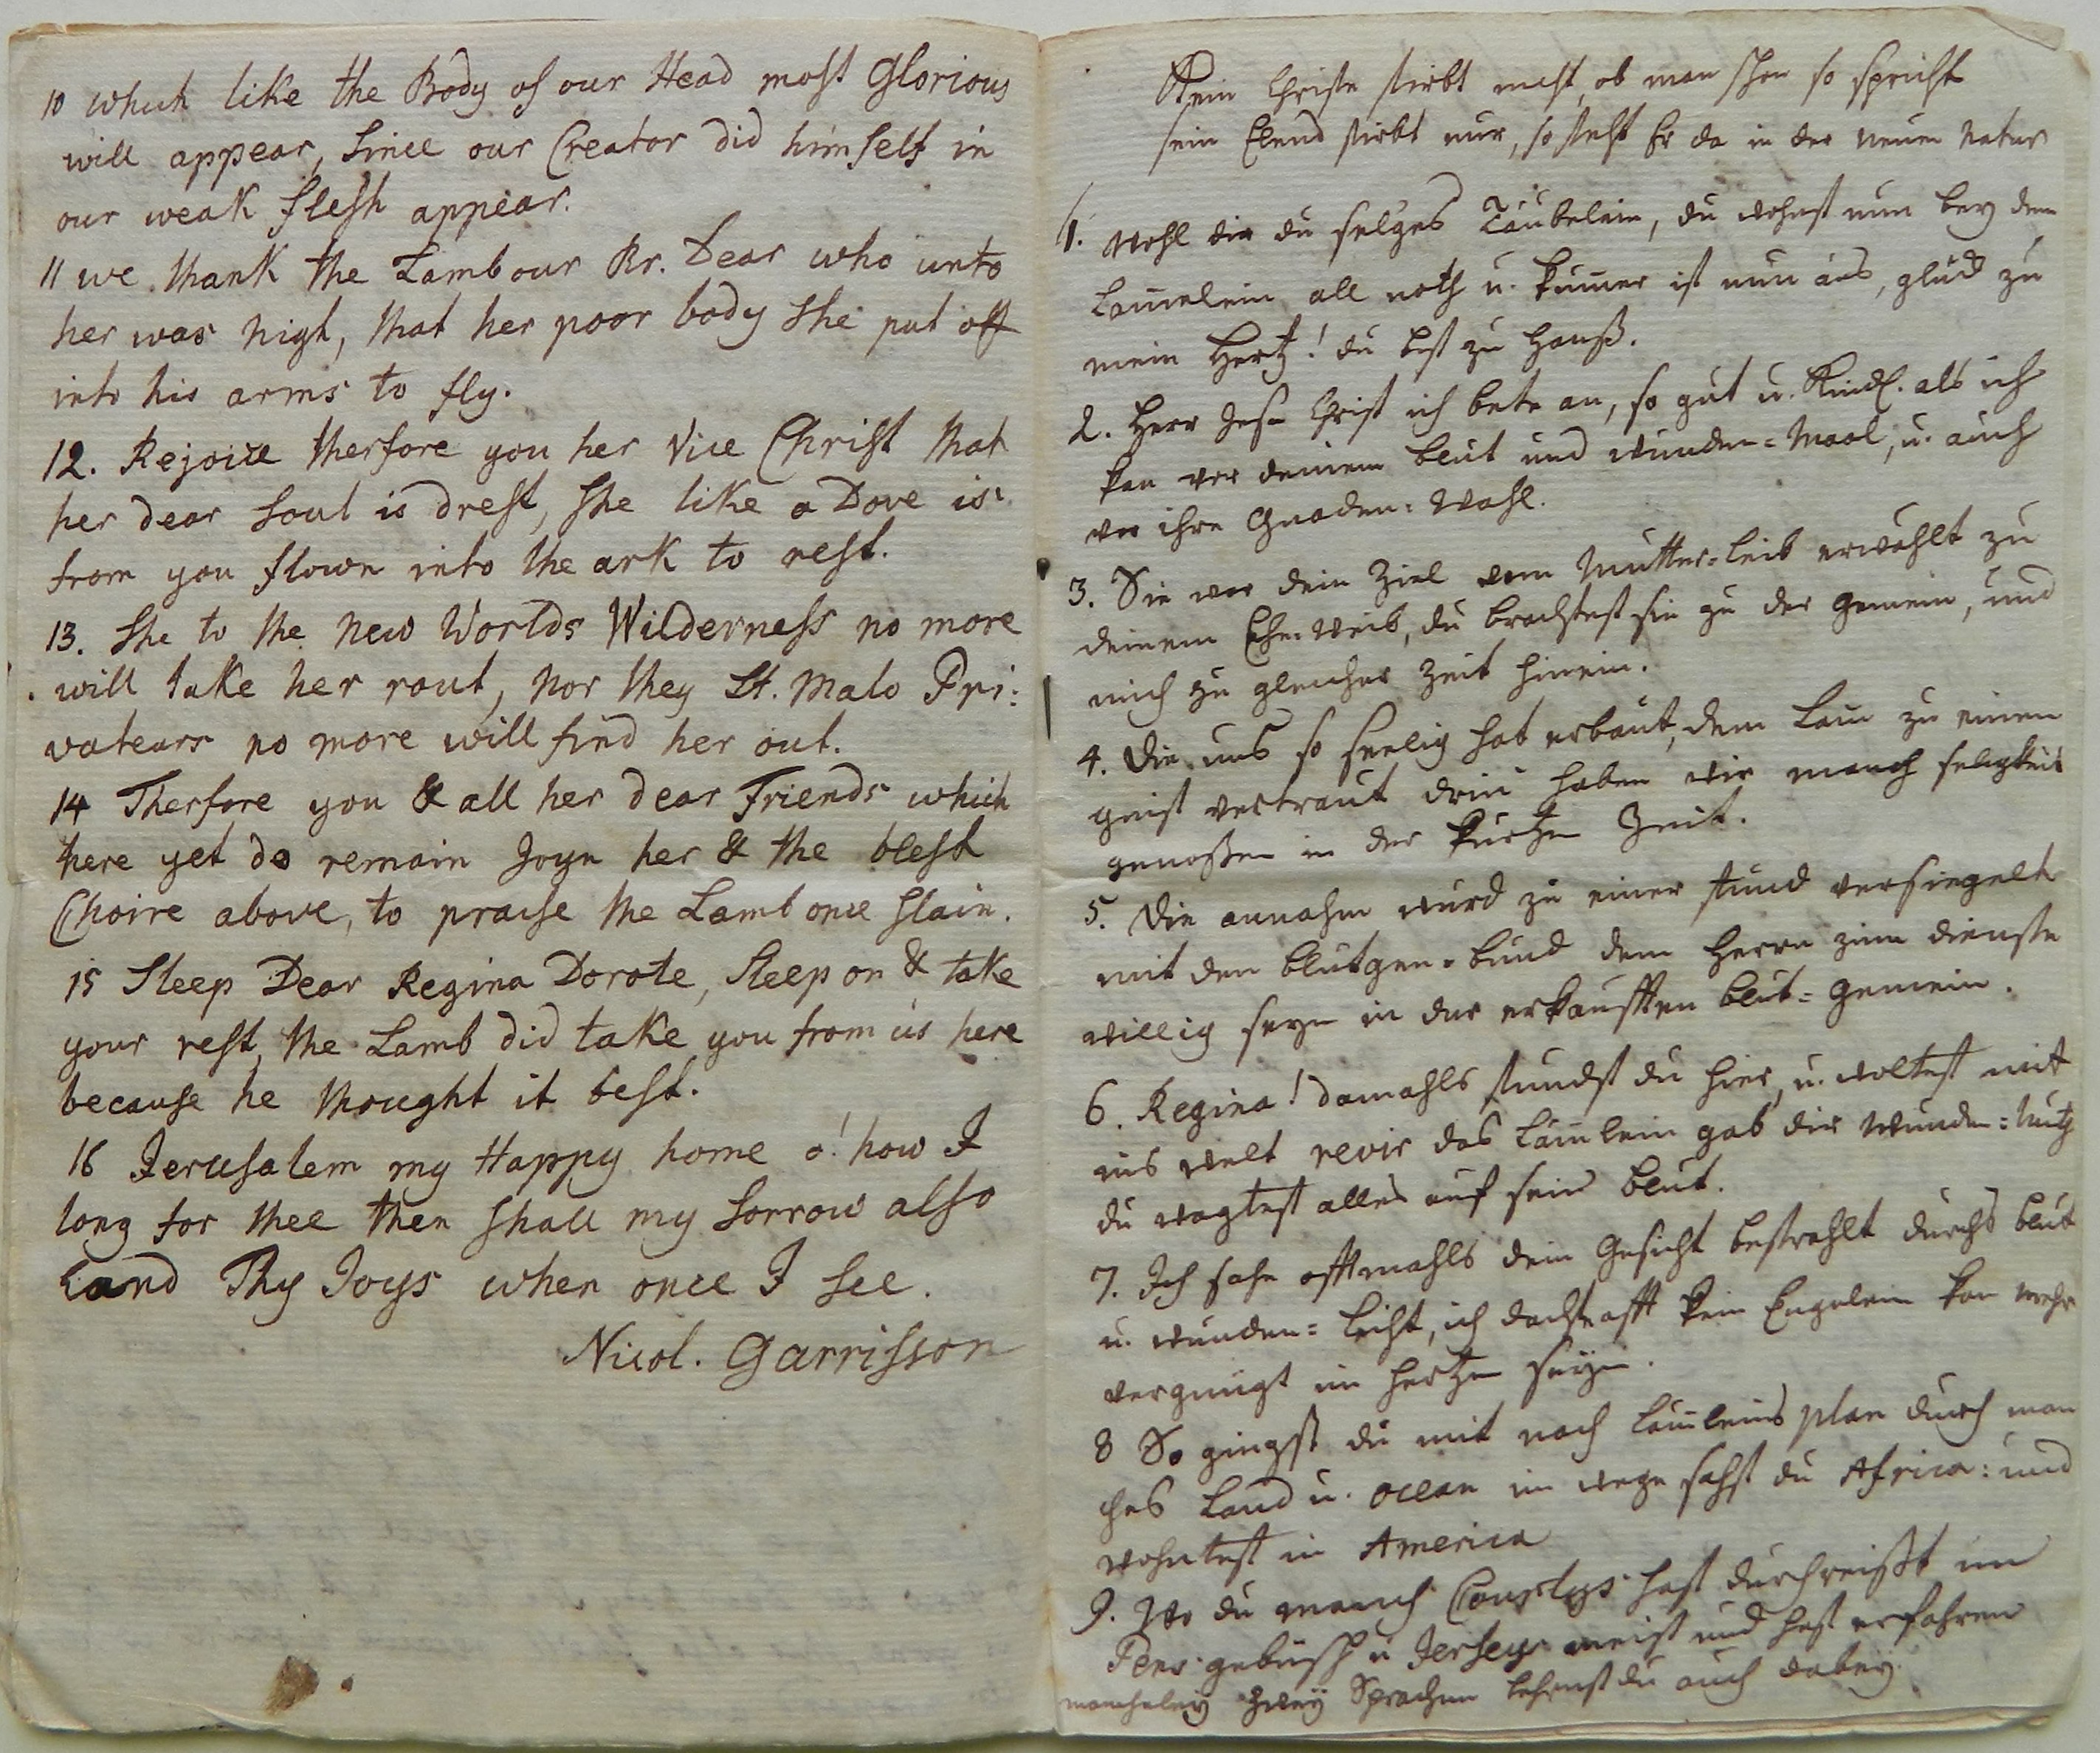 10 which like the Body of our Head most Glorious
will appear, Since our Creator did himself in
our weak flesh appear.
11 we thank the Lamb our Br. Dear who unto
her was nigh, that her poor body she put off
into his arms to fly.
12. Rejoice therfore you her Vice Christ that
her dear Soul is drest, She like a Dove is
from you flown into the ark to rest.
13. She to the new Worlds Wilderness no more
will take her rout, nor they St. Malo Pri:
vatears no more will find her out.
14 Therfore you & all her dear Friends which
here yet do remain Joyn her & the blest
Choire above, to praise the Lamb once Slain.
15 Sleep Dear Regina Dorote, Sleep on & take
your rest, the Lamb did take you from us here
because he thought it best.
16 Jerusalem my Happy home o! how I
long for thee then shall my Sorrow also
Land Thy Joys when once I See.
Nicol. Garrisson
Kein Christe stirbt nicht, ob man schon so spricht
sein Elend stirbt nur, so steht Er da in der neuen Natur
1. Wohl dir du selges Täubelein, du wohnst nun bey dem
Lam̄elein all noth u. kum̄er ist nun aus, glück zu
mein Hertz! du bist zu Hauß.
2. Herr Jesu Christ ich bete an, so gut u. Kindl. als ich
kan vor deinem blut und wunden=Maal, u. auch
vor ihre Gnaden=Wahl.
3. Sie war dein Ziel vom Mutter=Leib erwählt zu
deinem Ehe=Weib, du brachtest sie zu der gemein, und
mich zu gleicher Zeit hinein.
4. Die uns so seelig hat erbaut, dem Lam̄ zu einem
geist vertraut drin haben wir manch seligkeit
genoßen in der kurtzen Zeit.
5. Die annahm wurd zu einer stund versiegelt
mit den blutgen=bund dem Herrn zum dienste
willig seyn in der erkaufften blut=gemein.
6. Regina! damahls stundst du hier, u. woltest mit
ins welt revir das Läm̄lein gab dir Wunden=Muth
du wagtest alles auf sein blut.
7. Ich sahe offtmahls dein Gesicht bestrahlt durchs blut
u. wunden=Licht, ich dachte offt kein Engelein kan mehr
vergnügt im hertzen seyn.
8 So gingst du mit nach Läm̄leins plan durch man
ches Land u. Ocean im wege sahst du Africa: und
wohntest in America
9. Wo du manch Countys hast durchreißt im
Pens. gebüsch u Jersey meist und hast erfahren
mancheley zwey Sprachen lehrnst du auch dabey.